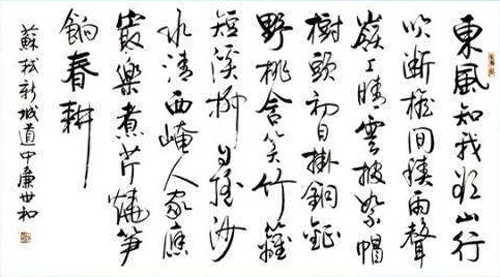 東風知我欲山行
吹斷檐間積雨聲
嶺上晴雲披絮帽
樹頭初日掛銅鉦
野桃含笑竹籬
短溪柳自搖沙
水清西崦人家應
最樂煮芹燒笋
餉春耕
蘇軾新城道中廉世和